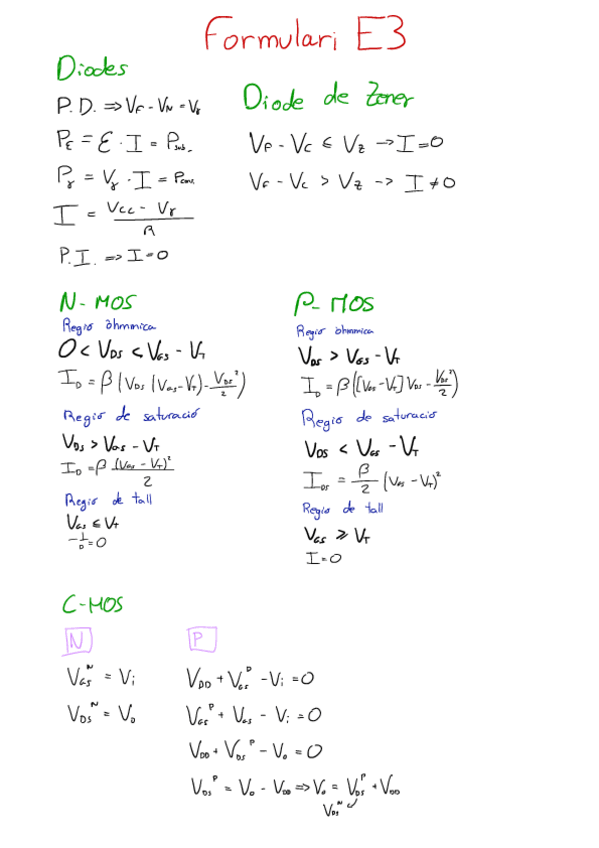 Formulari E3
Diodes
P.D. ⇒ V_P - V_N = V_γ
P_ε = ε · I = P_sub.
P_γ = V_γ · I = P_cons.
I = (V_CC - V_γ) / R
P.I. ⇒ I = 0
Diode de Zener
V_P - V_C ≤ V_Z → I = 0
V_P - V_C > V_Z -> I ≠ 0
N-MOS
Regió òhmmica
0 < V_DS < V_GS - V_T
I_D = β (V_DS (V_GS - V_T) - V_DS² / 2)
Regió de saturació
V_DS > V_GS - V_T
I_D = β (V_GS - V_T)² / 2
Regió de tall
V_GS ≤ V_T
I_D = 0
P-MOS
Regió òhmmica
V_DS > V_GS - V_T
I_D = β ([V_GS - V_T] V_DS - V_DS² / 2)
Regió de saturació
V_DS < V_GS - V_T
I_DS = β / 2 (V_GS - V_T)²
Regió de tall
V_GS ≥ V_T
I = 0
C-MOS
N
V_GS^N = V_i
V_DS^N = V_o
P
V_DD + V_GS^P - V_i = 0
V_GS^P + V_GS - V_i = 0
V_DD + V_DS^P - V_o = 0
V_DS^P = V_o - V_DD ⇒ V_o = V_DS^P + V_DD
V_DS^N